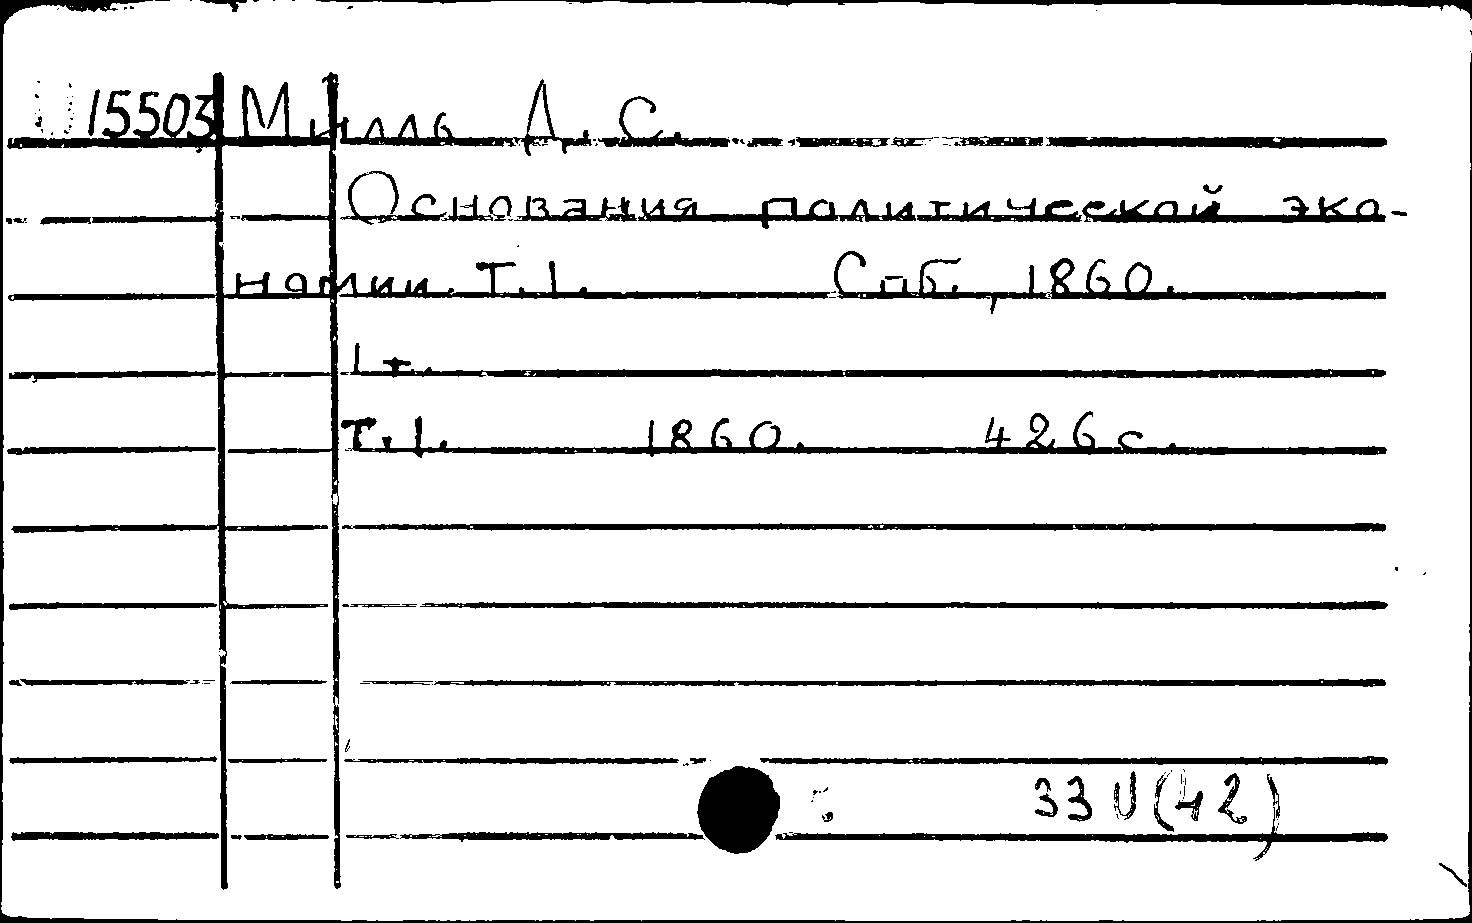 15503 Милль Д. С.
Основания политической эко-
номии. Т. 1. Спб., 1860.
1 т.
Т. 1. 1860. 426 с.
33 U (42)